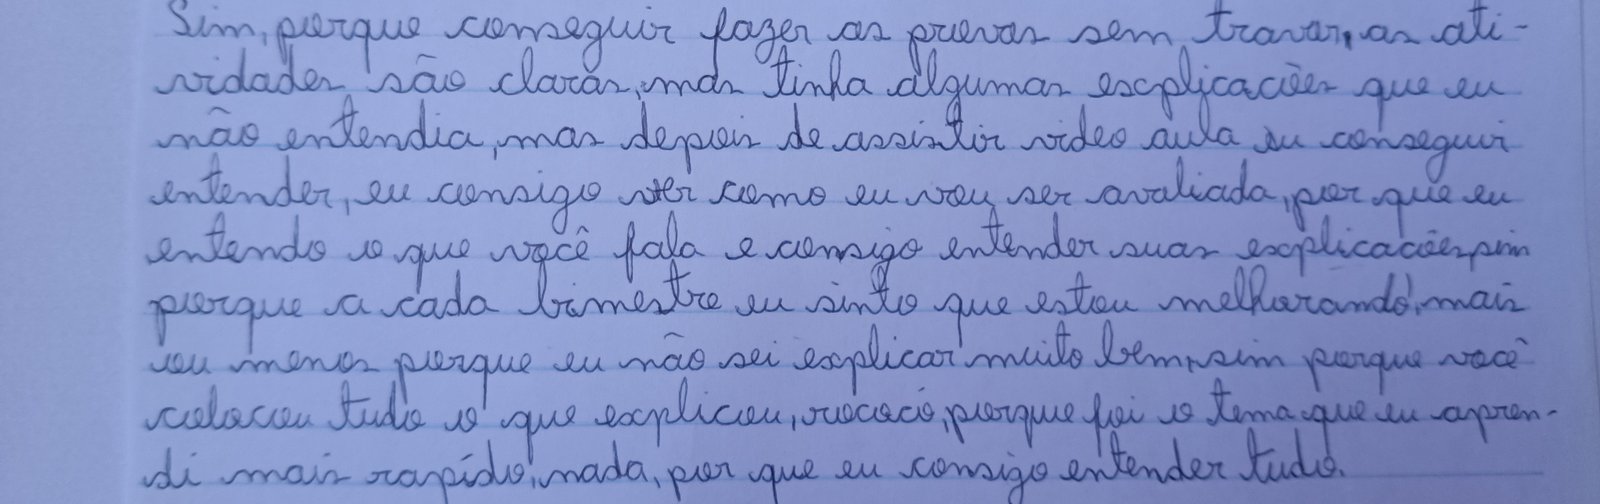 Sim, porque conseguir fazer as provas sem travar, as ati-
vidades são claras, mas tinha algumas explicações que eu
não entendia, mas depois de assistir video aula eu conseguir
entender, eu consigo ver como eu vou ser avaliada, por que eu
entendo o que você fala e consigo entender suas explicações, sim
porque a cada bimestre eu sinto que estou melhorando, mais
ou menos porque eu não sei explicar muito bem, sim porque você
colocou tudo o que explicou, rococó, porque foi o tema que eu apren-
di mais rapído, nada, por que eu consigo entender tudo.